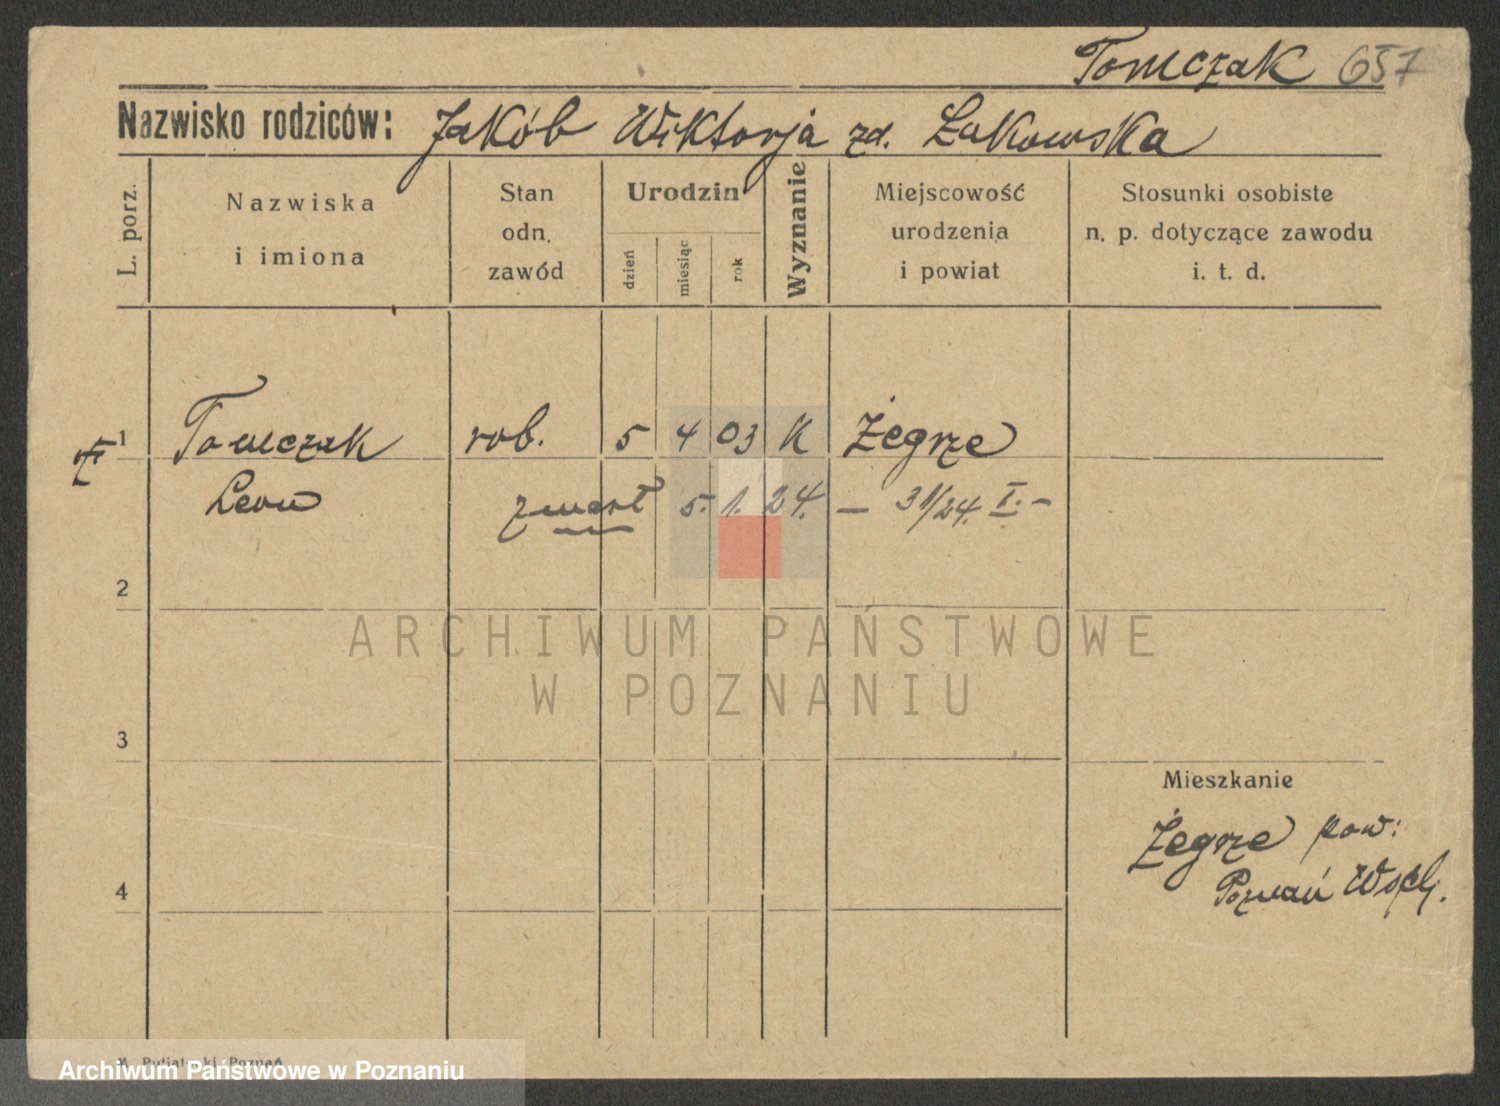 Tomczak 657
Nazwisko rodziców: Jakób Wiktorja zd. Łakowska
L. porz.
Nazwiska
i imiona
Stan
odn.
zawód
Urodzin
dzień
miesiąc
rok
Wyznanie
Miejscowość
urodzenia
i powiat
Stosunki osobiste
n. p. dotyczące zawodu
i. t. d.
1 Tomczak rob. 5 4 03 K Żegrze
Leon zmarł 5. 1. 24. — 31/24. I. –
2
ARCHIWUM PAŃSTWOWE
W POZNANIU
3
Mieszkanie
Żegrze pow:
4
Poznań Wsch.
Archiwum Państwowe w Poznaniu